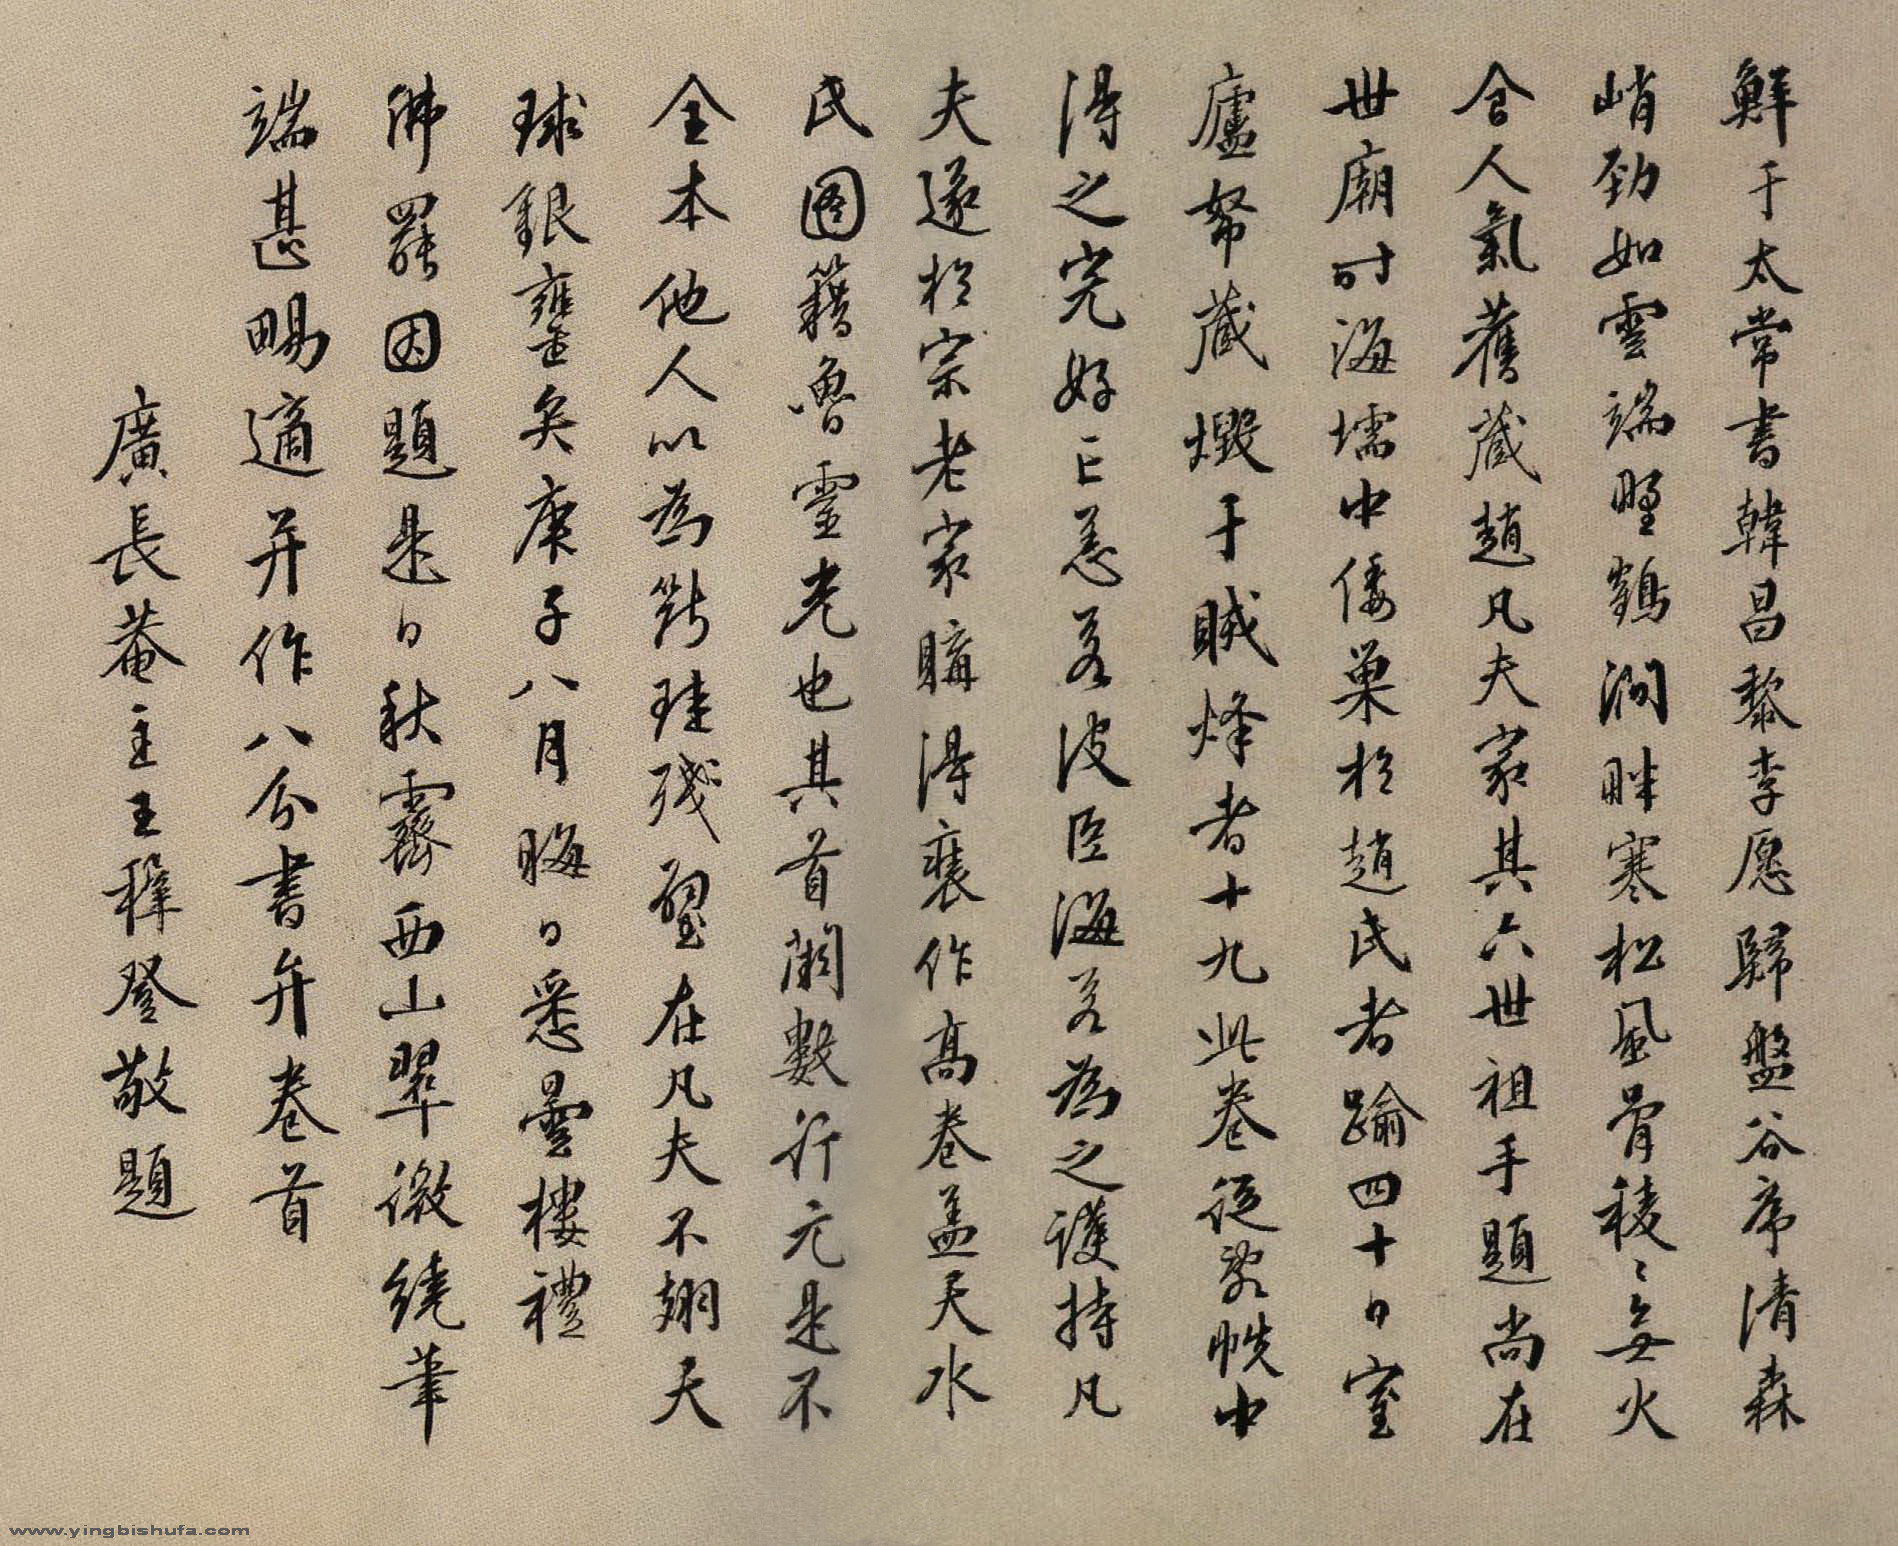 鮮于太常書韓昌黎李愿歸盤谷序清森
峭勁如雲端野鶴澗畔寒松風骨稜〻無火
食人氣舊藏趙凡夫家其六世祖手題尚在
世廟時海壖中倭巢於趙氏者踰四十日室
廬帑藏燬于賊烽者十九此卷從裂帙中
得之完好亡恙若波臣海若為之護持凡
夫遂於宗老家購得裝作高卷盖天水
氏圖籍魯靈光也其首闕數行元是不
全本他人以為斷珪殘璧在凡夫不翅天
球銀甕矣庚子八月晦日悉曇樓禮
佛罷因題是日秋霽西山翠微繞筆
端甚暢適并作八分書弁卷首
廣長菴主王穉登敬題
www.yingbishufa.com